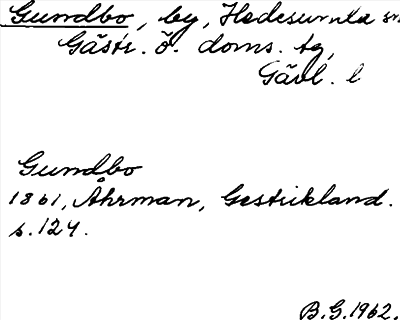 Gundbo, by, Hedesunda sn
Gästr. ö. doms. tg,
Gävl. l
Gundbo
1861, Åhrman, Gestrikland.
s. 124.
B.G. 1962.